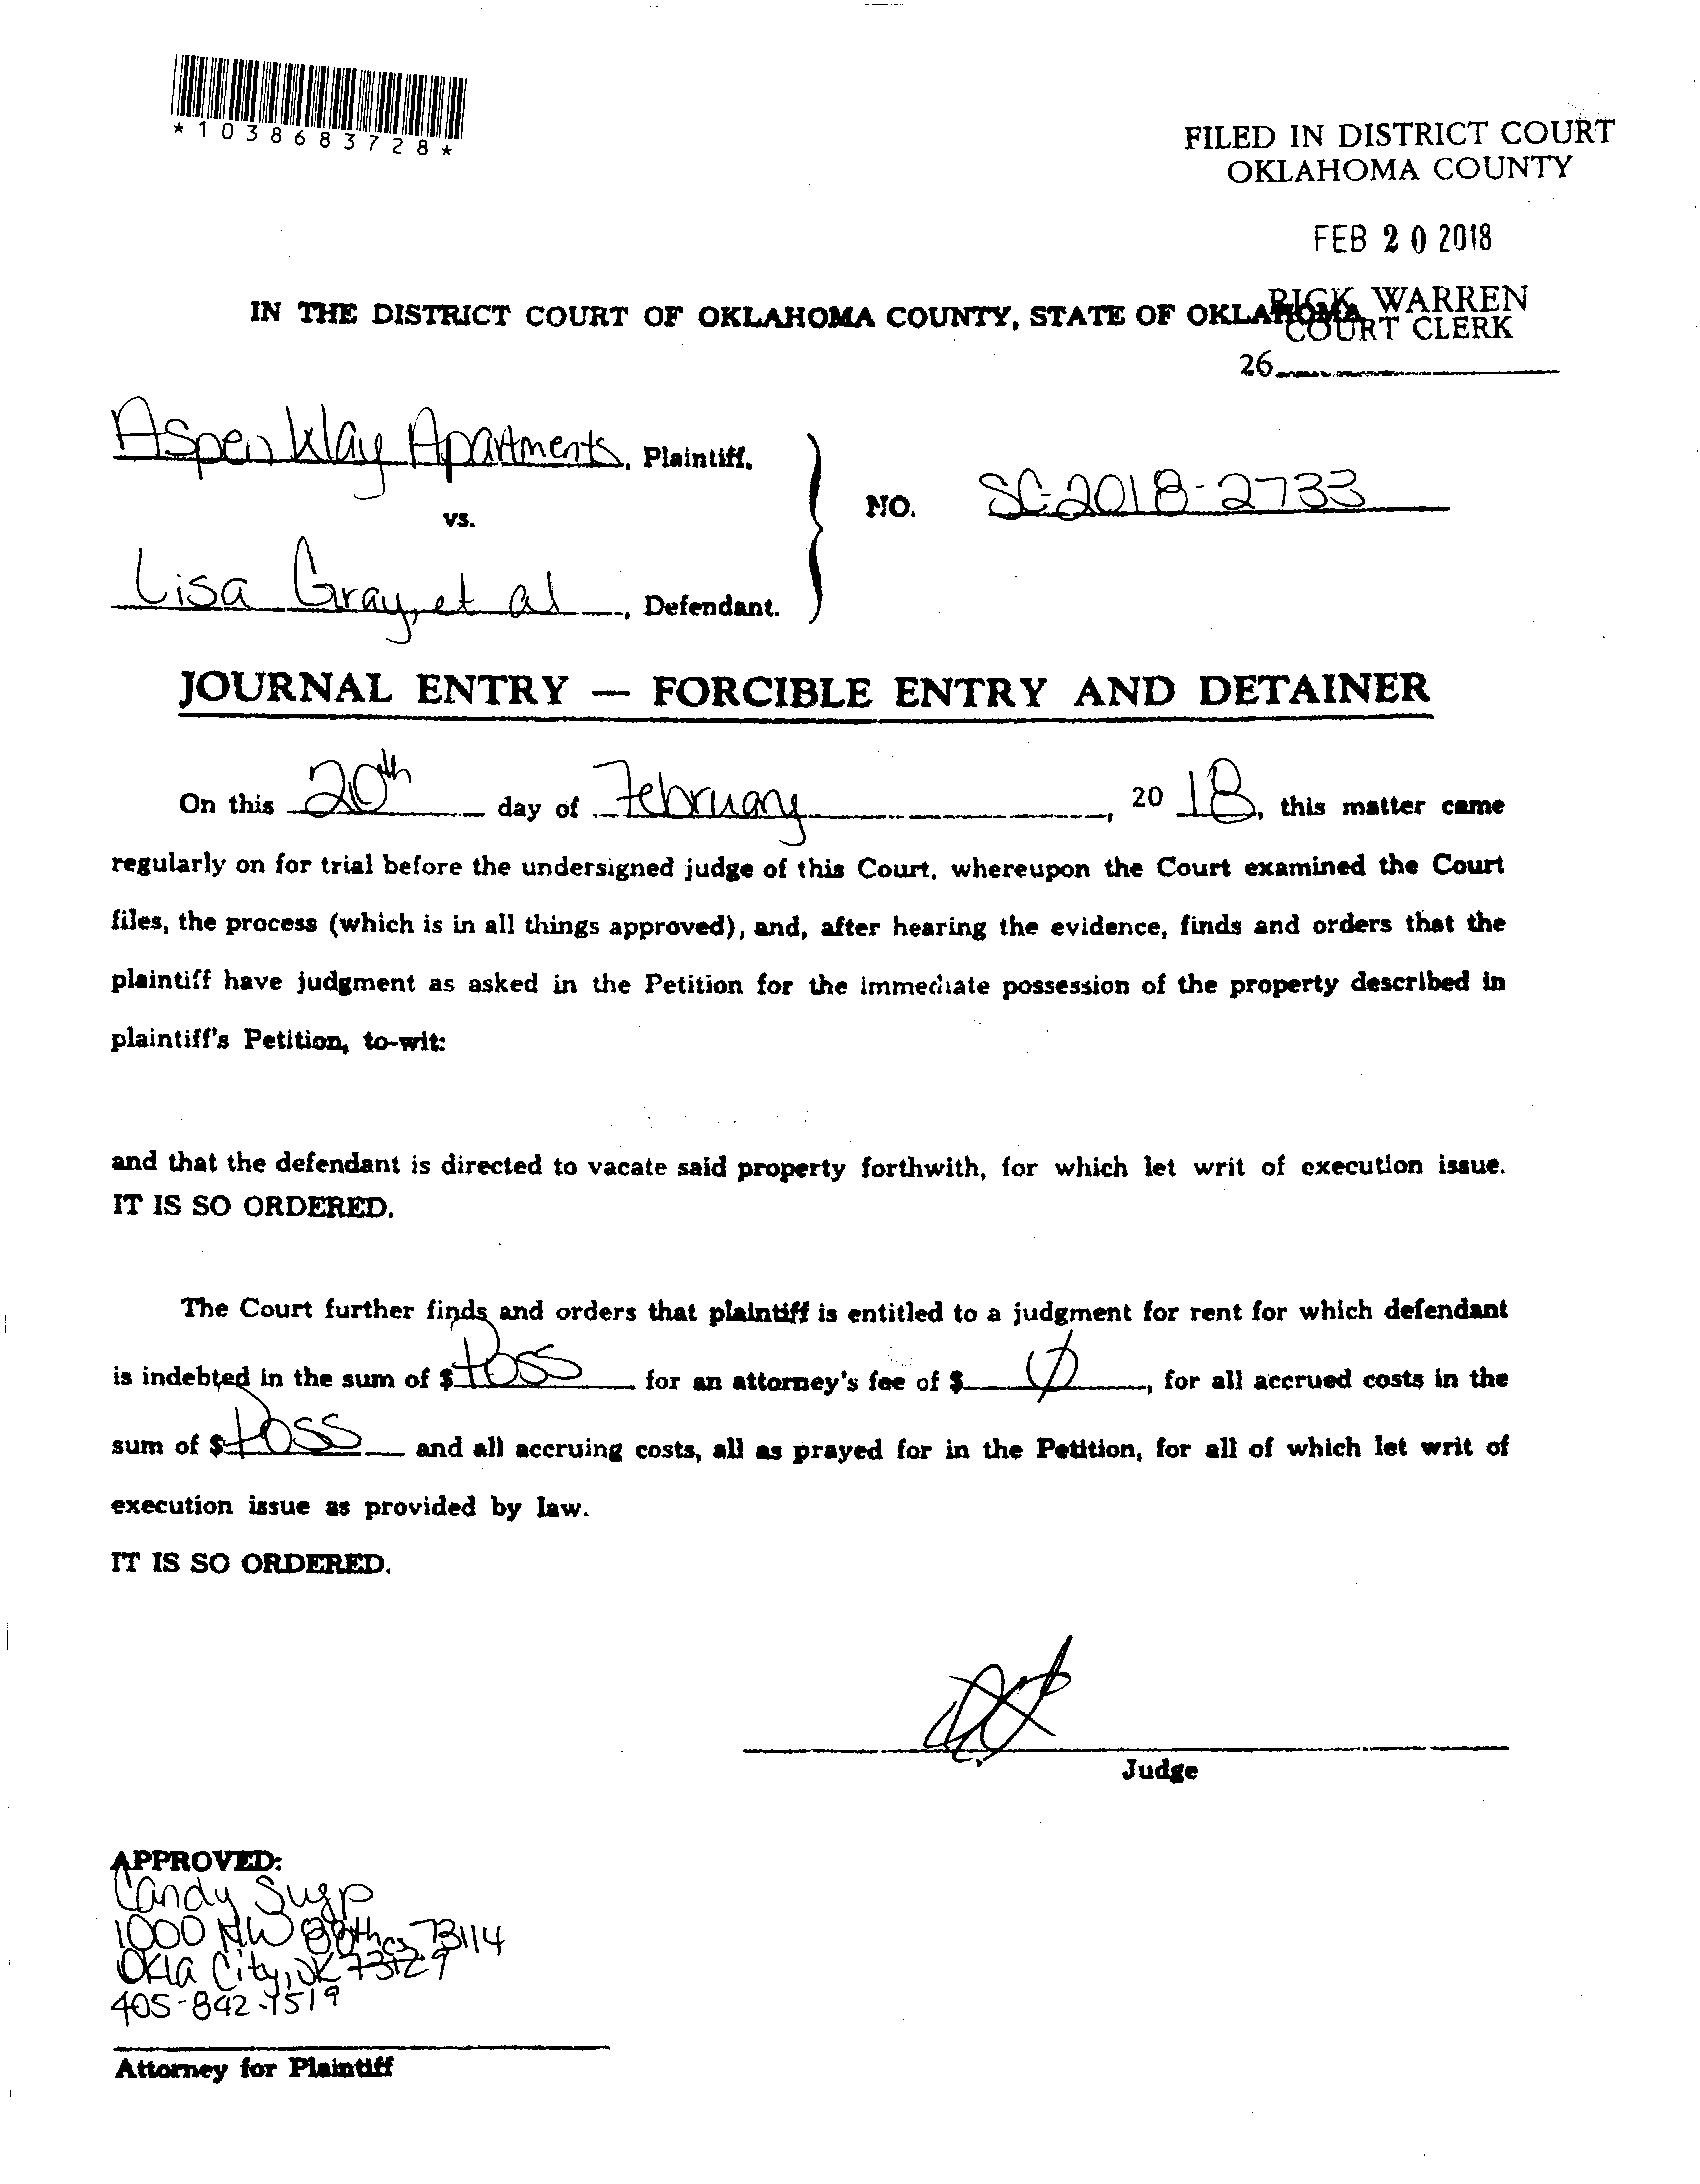 *1038683728*
FILED IN DISTRICT COURT
OKLAHOMA COUNTY
FEB 20 2018
RICK WARREN
COURT CLERK
26
IN THE DISTRICT COURT OF OKLAHOMA COUNTY, STATE OF OKLAHOMA
Aspen Way Apartments, Plaintiff,
vs.
NO. SC-2018-2733
Lisa Gray, et al, Defendant.
JOURNAL ENTRY — FORCIBLE ENTRY AND DETAINER
On this 20th day of February, 20 18, this matter came
regularly on for trial before the undersigned judge of this Court, whereupon the Court examined the Court
files, the process (which is in all things approved), and, after hearing the evidence, finds and orders that the
plaintiff have judgment as asked in the Petition for the immediate possession of the property described in
plaintiff's Petition, to-wit:
and that the defendant is directed to vacate said property forthwith, for which let writ of execution issue.
IT IS SO ORDERED.
The Court further finds and orders that plaintiff is entitled to a judgment for rent for which defendant
is indebted in the sum of $ Poss for an attorney's fee of $ Ø, for all accrued costs in the
sum of $ Poss and all accruing costs, all as prayed for in the Petition, for all of which let writ of
execution issue as provided by law.
IT IS SO ORDERED.
Judge
APPROVED:
Candy
1000 NW 88th 73114
Okla City, OK
405-842-7519
Attorney for Plaintiff